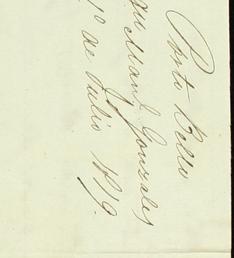 Porto Bello
Man¹ Gonzales
1º de Julio 1819.